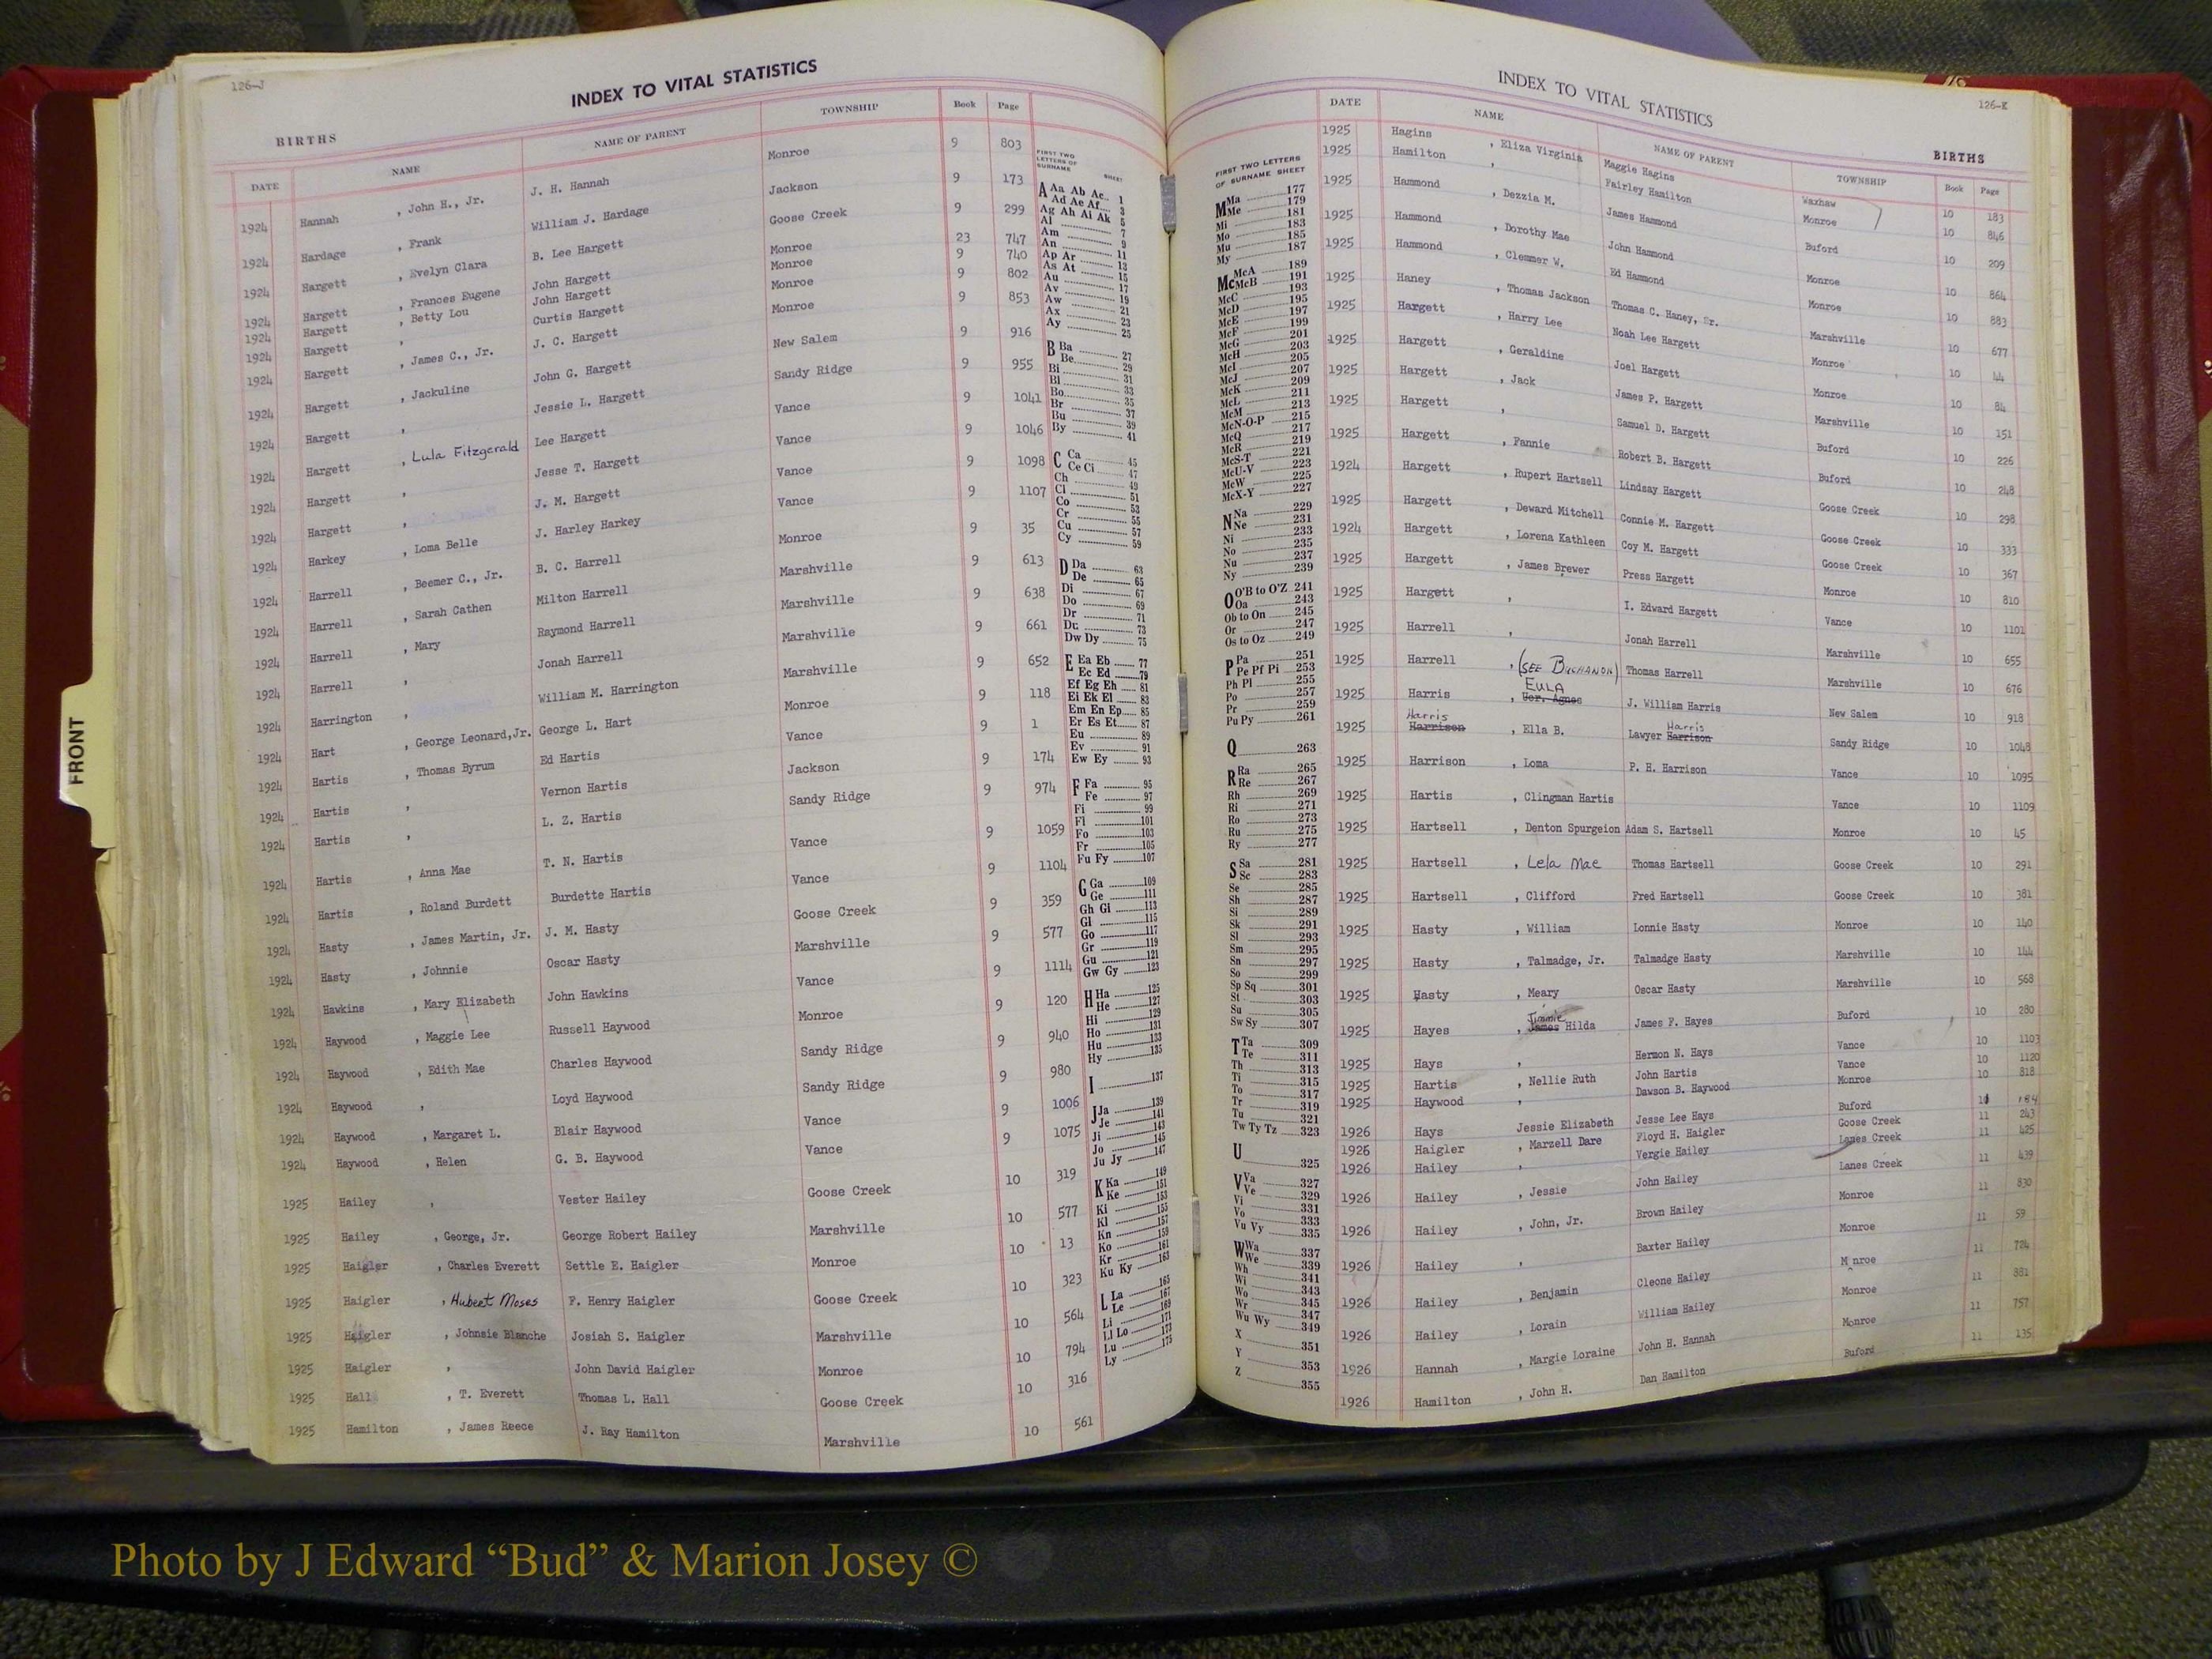 126-J
INDEX TO VITAL STATISTICS
BIRTHS
DATE NAME NAME OF PARENT TOWNSHIP Book Page
1924 Hannah , John H., Jr. J. H. Hannah Monroe 9 803
1924 Hardage , Frank William J. Hardage Jackson 9 173
1924 Hargett , Evelyn Clara B. Lee Hargett Goose Creek 9 299
1924 Hargett , Frances Eugene John Hargett Monroe 23 747
1924 Hargett , Betty Lou John Hargett Monroe 9 740
1924 Hargett , Curtis Hargett Monroe 9 802
1924 Hargett , James C., Jr. J. C. Hargett Monroe 9 853
1924 Hargett , Jackuline John G. Hargett New Salem 9 916
1924 Hargett , Jessie L. Hargett Sandy Ridge 9 955
1924 Hargett , Lula Fitzgerald Lee Hargett Vance 9 1041
1924 Hargett , Jesse T. Hargett Vance 9 1046
1924 Hargett , J. M. Hargett Vance 9 1098
1924 Harkey , Loma Belle J. Harley Harkey Vance 9 1107
1924 Harrell , Beemer C., Jr. B. C. Harrell Monroe 9 35
1924 Harrell , Sarah Cathen Milton Harrell Marshville 9 613
1924 Harrell , Mary Raymond Harrell Marshville 9 638
1924 Harrell , Jonah Harrell Marshville 9 661
1924 Harrington , William M. Harrington Marshville 9 652
1924 Hart , George Leonard,Jr. George L. Hart Monroe 9 118
1924 Hartis , Thomas Byrum Ed Hartis Vance 9 1
1924 Hartis , Vernon Hartis Jackson 9 174
1924 Hartis , L. Z. Hartis Sandy Ridge 9 974
1924 Hartis , Anna Mae T. N. Hartis Vance 9 1059
1924 Hartis , Roland Burdett Burdette Hartis Vance 9 1104
1924 Hasty , James Martin, Jr. J. M. Hasty Goose Creek 9 359
1924 Hasty , Johnnie Oscar Hasty Marshville 9 577
1924 Hawkins , Mary Elizabeth John Hawkins Vance 9 1114
1924 Haywood , Maggie Lee Russell Haywood Monroe 9 120
1924 Haywood , Edith Mae Charles Haywood Sandy Ridge 9 940
1924 Haywood , Loyd Haywood Sandy Ridge 9 980
1924 Haywood , Margaret L. Blair Haywood Vance 9 1006
1924 Haywood , Helen G. B. Haywood Vance 9 1075
1925 Hailey , Vester Hailey Goose Creek 10 319
1925 Hailey , George, Jr. George Robert Hailey Marshville 10 577
1925 Haigler , Charles Everett Settle E. Haigler Monroe 10 13
1925 Haigler , Hubert Moses F. Henry Haigler Goose Creek 10 323
1925 Haigler , Johnsie Blanche Josiah S. Haigler Marshville 10 564
1925 Haigler , John David Haigler Monroe 10 794
1925 Hall , T. Everett Thomas L. Hall Goose Creek 10 316
1925 Hamilton , James Reece J. Ray Hamilton Marshville 10 561
FIRST TWO
LETTERS OF
SURNAME SHEET
A Aa Ab Ac 1
Ad Ae Af 3
Ag Ah Ai Ak 5
Al 7
Am 9
An 11
Ap Ar 13
As At 15
Au 17
Av 19
Aw 21
Ax 23
Ay 25
B Ba 27
Be 29
Bi 31
Bl 33
Bo 35
Br 37
Bu 39
By 41
C Ca 45
Ce Ci 47
Ch 49
Cl 51
Co 53
Cr 55
Cu 57
Cy 59
D Da 63
De 65
Di 67
Do 69
Dr 71
Du 73
Dw Dy 75
E Ea Eb 77
Ec Ed 79
Ef Eg Eh 81
Ei Ek El 83
Em En Ep 85
Er Es Et 87
Eu 89
Ev 91
Ew Ey 93
F Fa 95
Fe 97
Fi 99
Fl 101
Fo 103
Fr 105
Fu Fy 107
G Ga 109
Ge 111
Gh Gi 113
Gl 115
Go 117
Gr 119
Gu 121
Gw Gy 123
H Ha 125
He 127
Hi 129
Ho 131
Hu 133
Hy 135
I 137
J Ja 139
Je 141
Ji 143
Jo 145
Ju Jy 147
K Ka 149
Ke 151
Ki 153
Kl 155
Kn 157
Ko 159
Kr 161
Ku Ky 163
L La 165
Le 167
Li 169
Ll Lo 171
Lu 173
Ly 175
126-K
INDEX TO VITAL STATISTICS
BIRTHS
FIRST TWO LETTERS
OF SURNAME SHEET
M Ma 177
Me 179
Mi 181
Mo 183
Mu 185
My 187
Mc McA 189
McB 191
McC 193
McD 195
McE 197
McF 199
McG 201
McH 203
McI 205
McJ 207
McK 209
McL 211
McM 213
McN-O-P 215
McQ 217
McR 219
McS-T 221
McU-V 223
McW 225
McX-Y 227
N Na 229
Ne 231
Ni 233
No 235
Nu 237
Ny 239
O O'B to O'Z 241
Oa 243
Ob to On 245
Or 247
Os to Oz 249
P Pa 251
Pe Pf Pi 253
Ph Pl 255
Po 257
Pr 259
Pu Py 261
Q 263
R Ra 265
Re 267
Rh 269
Ri 271
Ro 273
Ru 275
Ry 277
S Sa 281
Sc 283
Se 285
Sh 287
Si 289
Sk 291
Sl 293
Sm 295
Sn 297
So 299
Sp Sq 301
St 303
Su 305
Sw Sy 307
T Ta 309
Te 311
Th 313
Ti 315
To 317
Tr 319
Tu 321
Tw Ty Tz 323
U 325
V Va 327
Ve 329
Vi 331
Vo 333
Vu Vy 335
W Wa 337
We 339
Wh 341
Wi 343
Wo 345
Wr 347
Wu Wy 349
X 351
Y 353
Z 355
DATE NAME NAME OF PARENT TOWNSHIP Book Page
1925 Hagins , Eliza Virginia Maggie Hagins Waxhaw 10 183
1925 Hamilton , Fairley Hamilton Monroe 10 846
1925 Hammond , Dezzia M. James Hammond Buford 10 209
1925 Hammond , Dorothy Mae John Hammond Monroe 10 864
1925 Hammond , Clemmer W. Ed Hammond Monroe 10 883
1925 Haney , Thomas Jackson Thomas C. Haney, Sr. Marshville 10 677
1925 Hargett , Harry Lee Noah Lee Hargett Monroe 10 44
1925 Hargett , Geraldine Joel Hargett Monroe 10 84
1925 Hargett , Jack James P. Hargett Marshville 10 151
1925 Hargett , Samuel D. Hargett Buford 10 226
1925 Hargett , Fannie Robert B. Hargett Buford 10 248
1924 Hargett , Rupert Hartsell Lindsay Hargett Goose Creek 10 298
1925 Hargett , Deward Mitchell Connie M. Hargett Goose Creek 10 333
1924 Hargett , Lorena Kathleen Coy M. Hargett Goose Creek 10 367
1925 Hargett , James Brewer Press Hargett Monroe 10 810
1925 Hargett , I. Edward Hargett Vance 10 1101
1925 Harrell , Jonah Harrell Marshville 10 655
1925 Harrell , (SEE BUCHANON) Thomas Harrell Marshville 10 676
EULA
1925 Harris , Ver. Agnes J. William Harris New Salem 10 918
Harris Harris
1925 Harrison , Ella B. Lawyer Harrison Sandy Ridge 10 1048
1925 Harrison , Loma P. H. Harrison Vance 10 1095
1925 Hartis , Clingman Hartis Vance 10 1109
1925 Hartsell , Denton Spurgeion Adam S. Hartsell Monroe 10 45
1925 Hartsell , Lela Mae Thomas Hartsell Goose Creek 10 291
1925 Hartsell , Clifford Fred Hartsell Goose Creek 10 381
1925 Hasty , William Lonnie Hasty Monroe 10 140
1925 Hasty , Talmadge, Jr. Talmadge Hasty Marshville 10 144
1925 Hasty , Meary Oscar Hasty Marshville 10 568
Jimmie
1925 Hayes , James Hilda James F. Hayes Buford 10 280
1925 Hays , Hermon N. Hays Vance 10 1103
1925 Hartis , Nellie Ruth John Hartis Vance 10 1120
1925 Haywood , Dawson B. Haywood Monroe 10 818
1926 Hays Jessie Elizabeth Jesse Lee Hays Buford 184
1926 Haigler , Marzell Dare Floyd H. Haigler Goose Creek 11 243
1926 Hailey , Vergie Hailey Lanes Creek 11 425
1926 Hailey , Jessie John Hailey Lanes Creek 11 439
1926 Hailey , John, Jr. Brown Hailey Monroe 11 830
1926 Hailey , Baxter Hailey Monroe 11 59
1926 Hailey , Benjamin Cleone Hailey M nroe 11 724
1926 Hailey , Lorain William Hailey Monroe 11 381
1926 Hannah , Margie Loraine John H. Hannah Monroe 11 757
1926 Hamilton , John H. Dan Hamilton Buford 11 135
FRONT
Photo by J Edward “Bud” & Marion Josey ©